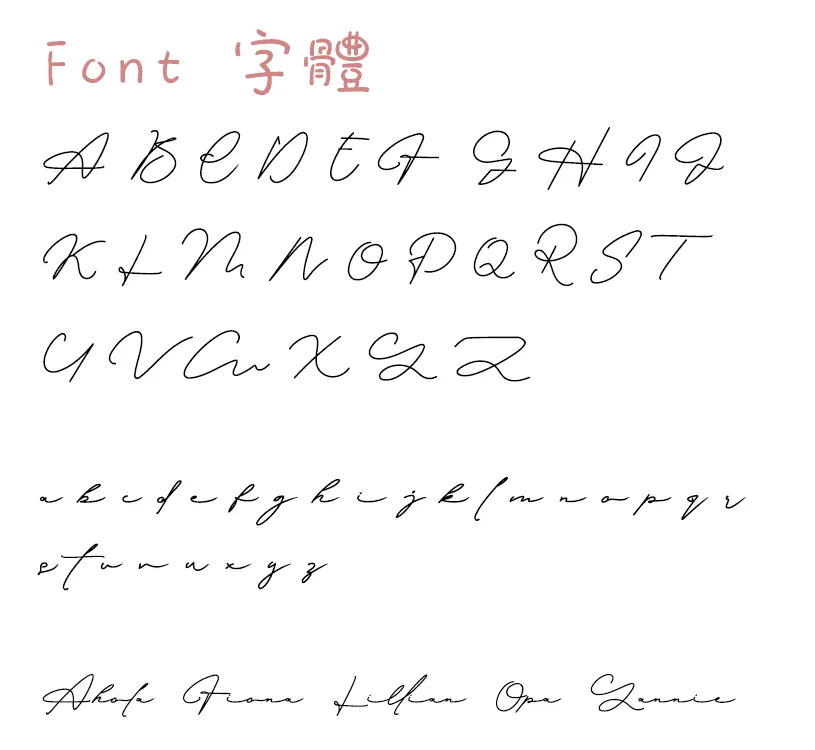 Font 字體
A B C D E F G H I J
K L M N O P Q R S T
U V W X Y Z
a b c d e f g h i j k l m n o p q r
s t u v w x y z
Ahola Fiona Lillian Opa Yannie